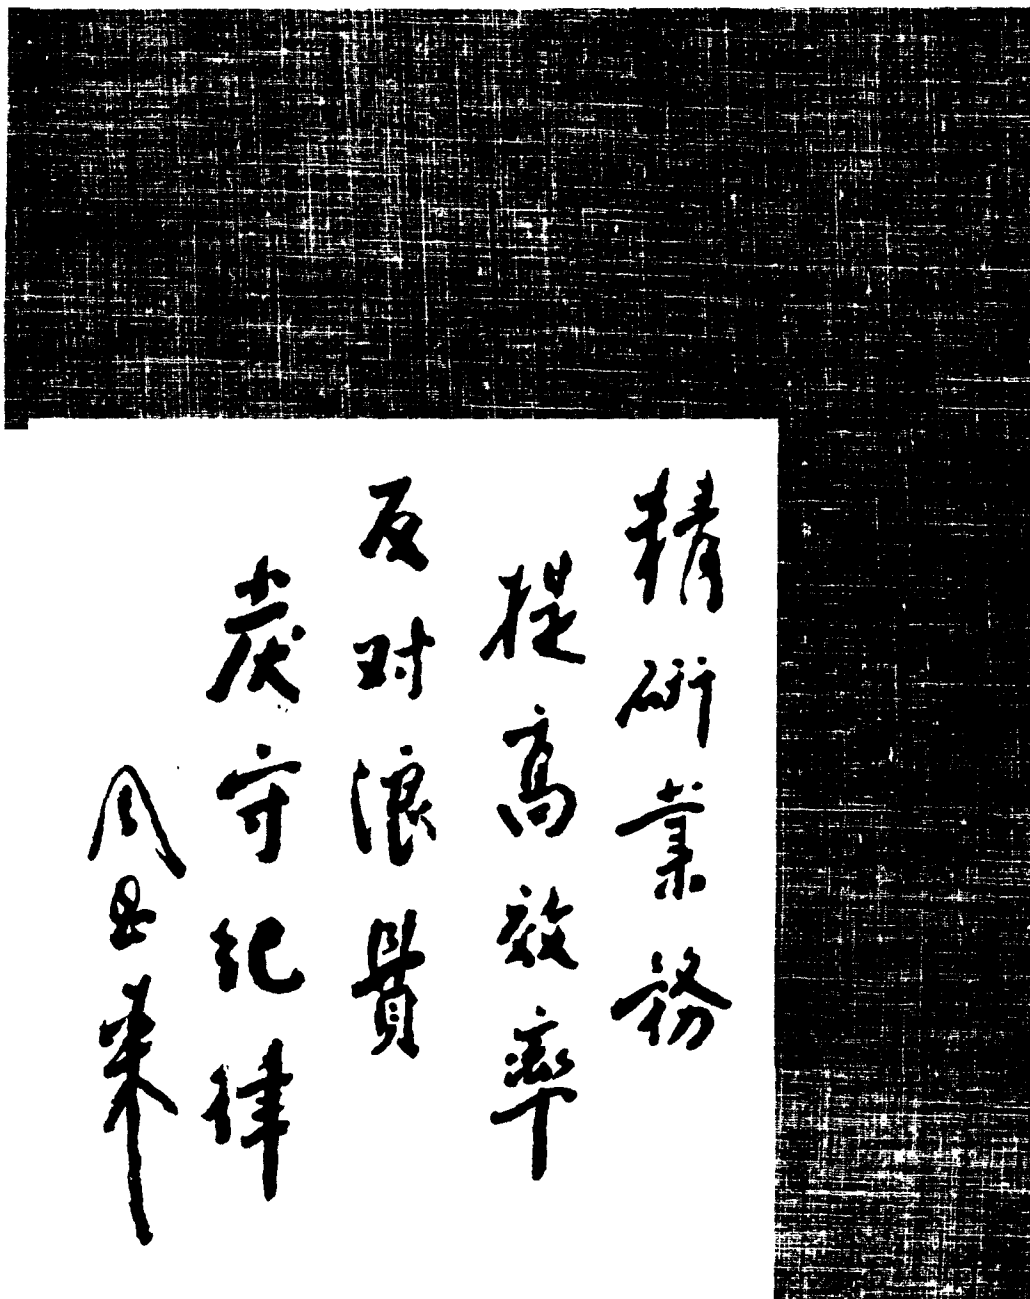 精研業務
提高效率
反对浪費
严守纪律
周恩来